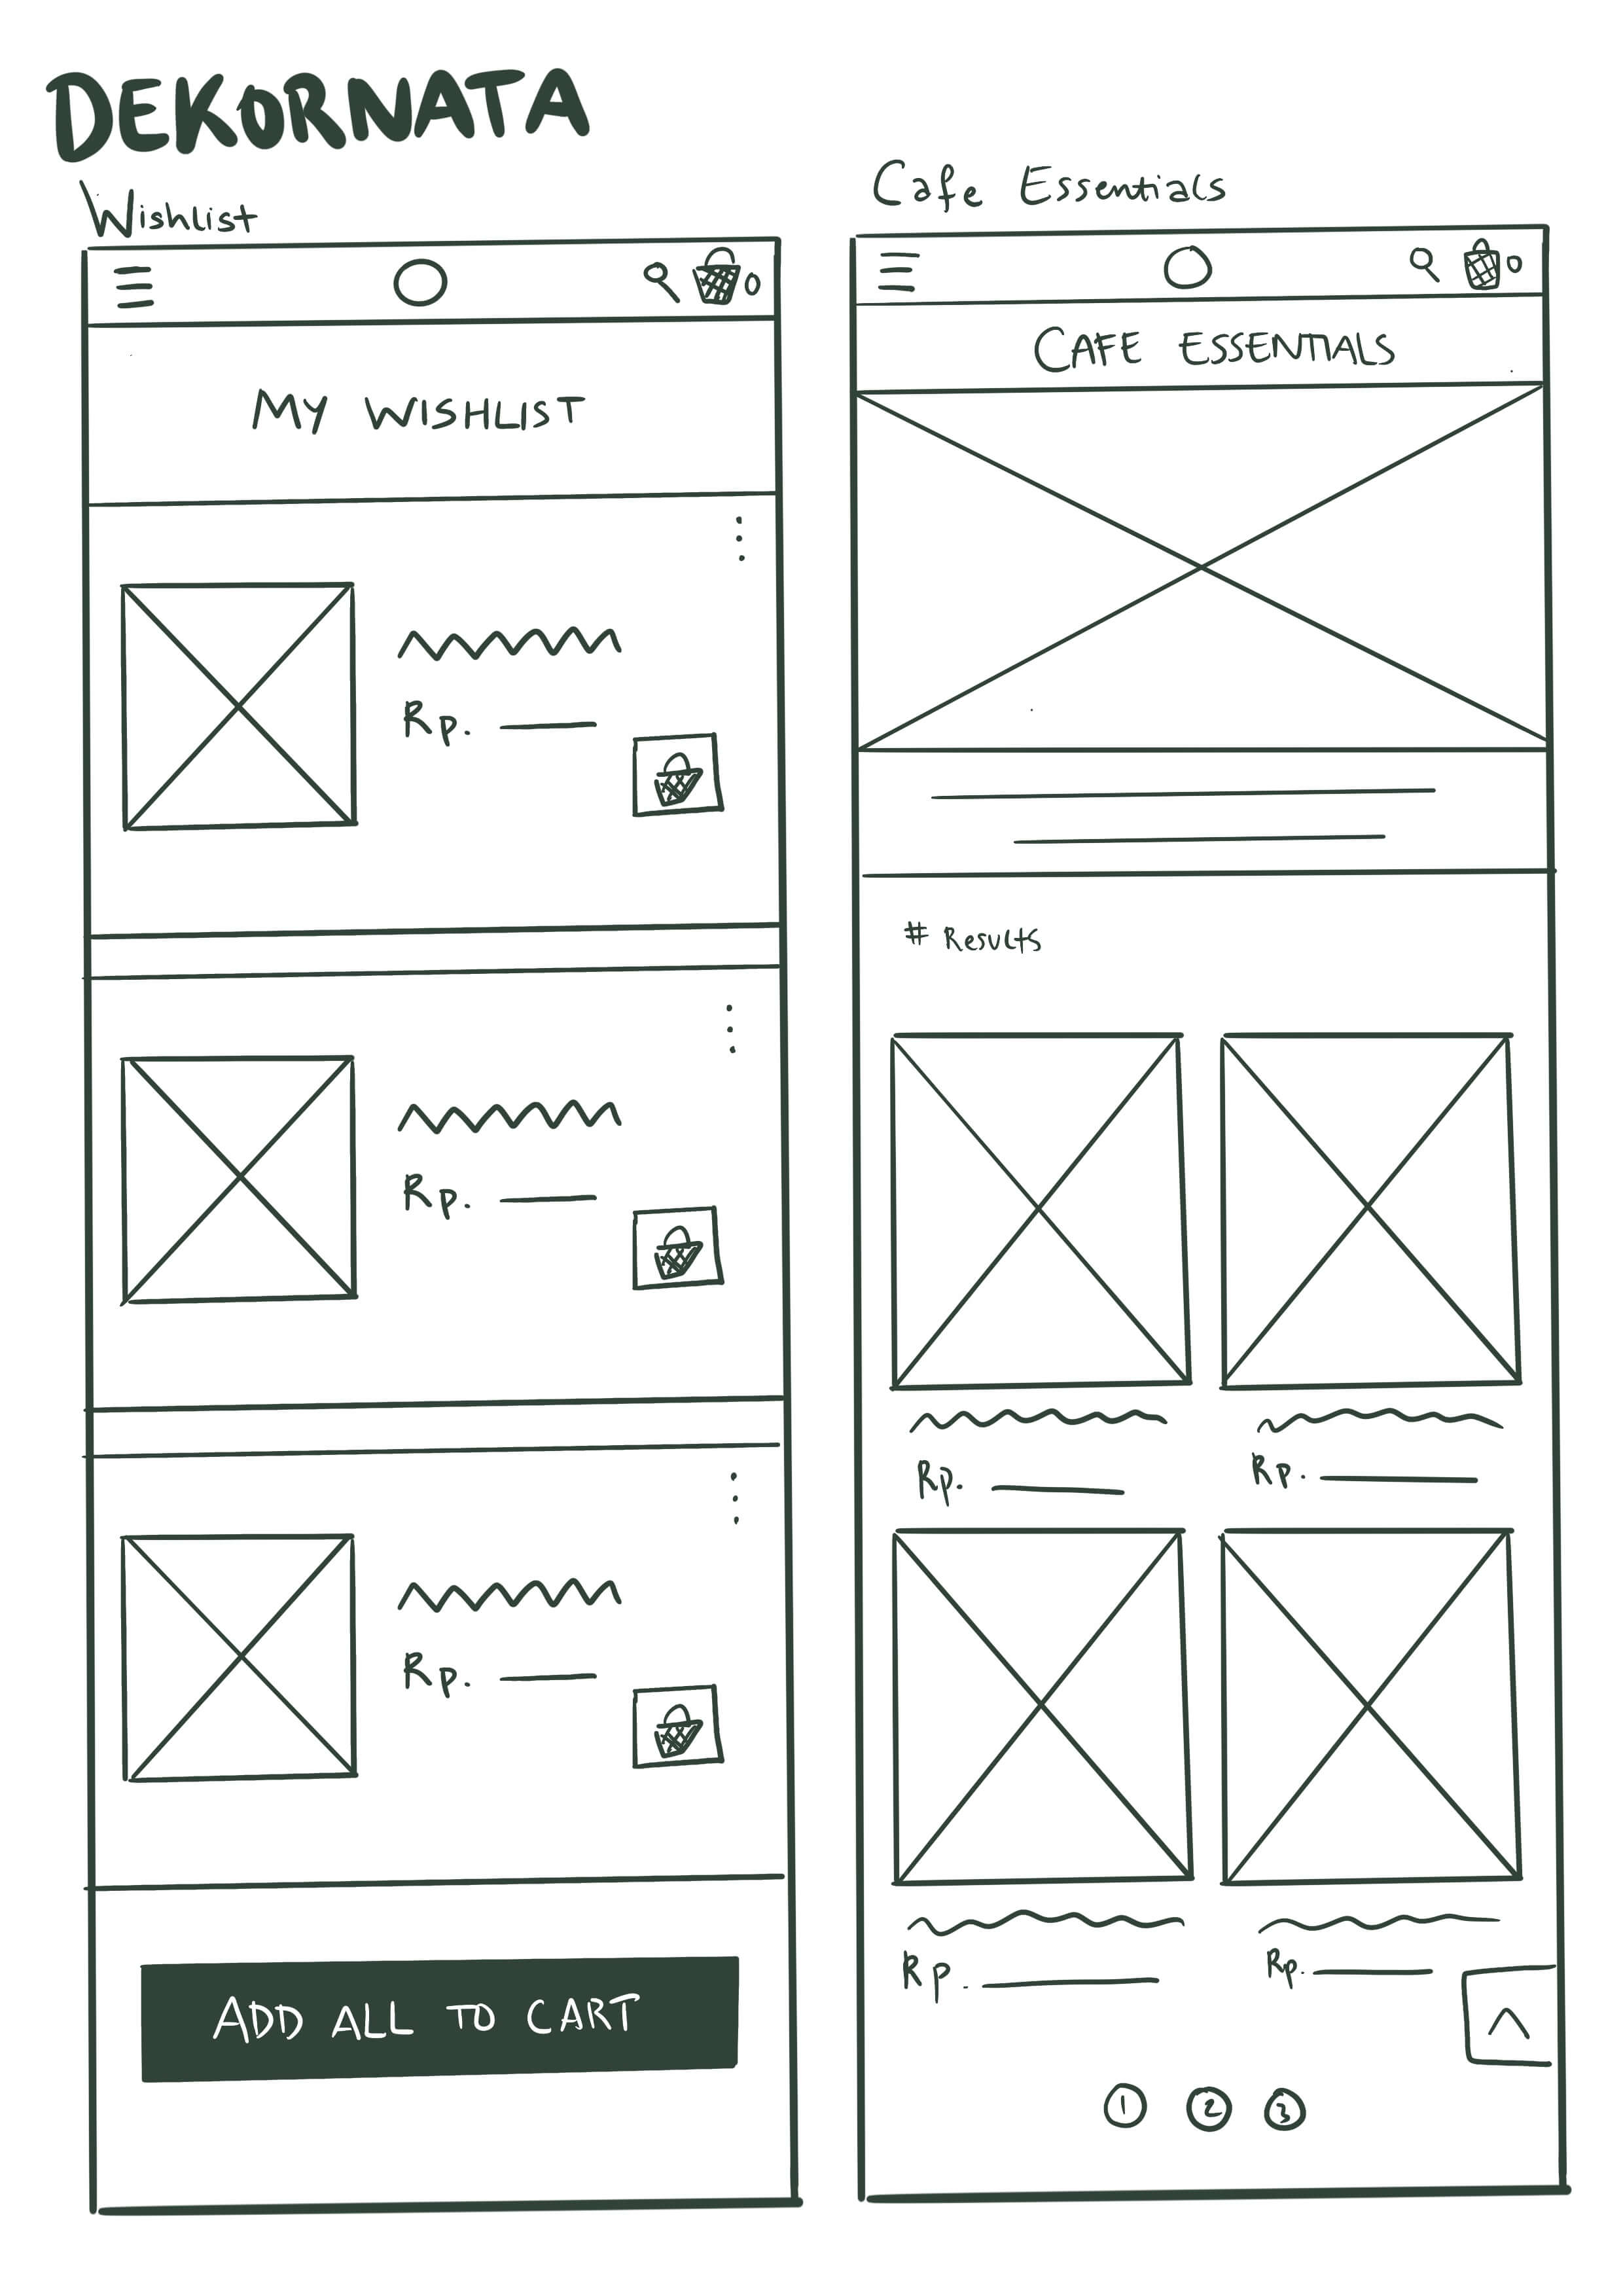 DEKORNATA
Wishlist
0
MY WISHLIST
Rp.
Rp.
Rp.
ADD ALL TO CART
Cafe Essentials
0
CAFE ESSENTIALS
# Results
Rp. Rp.
Rp. Rp.
1 2 3